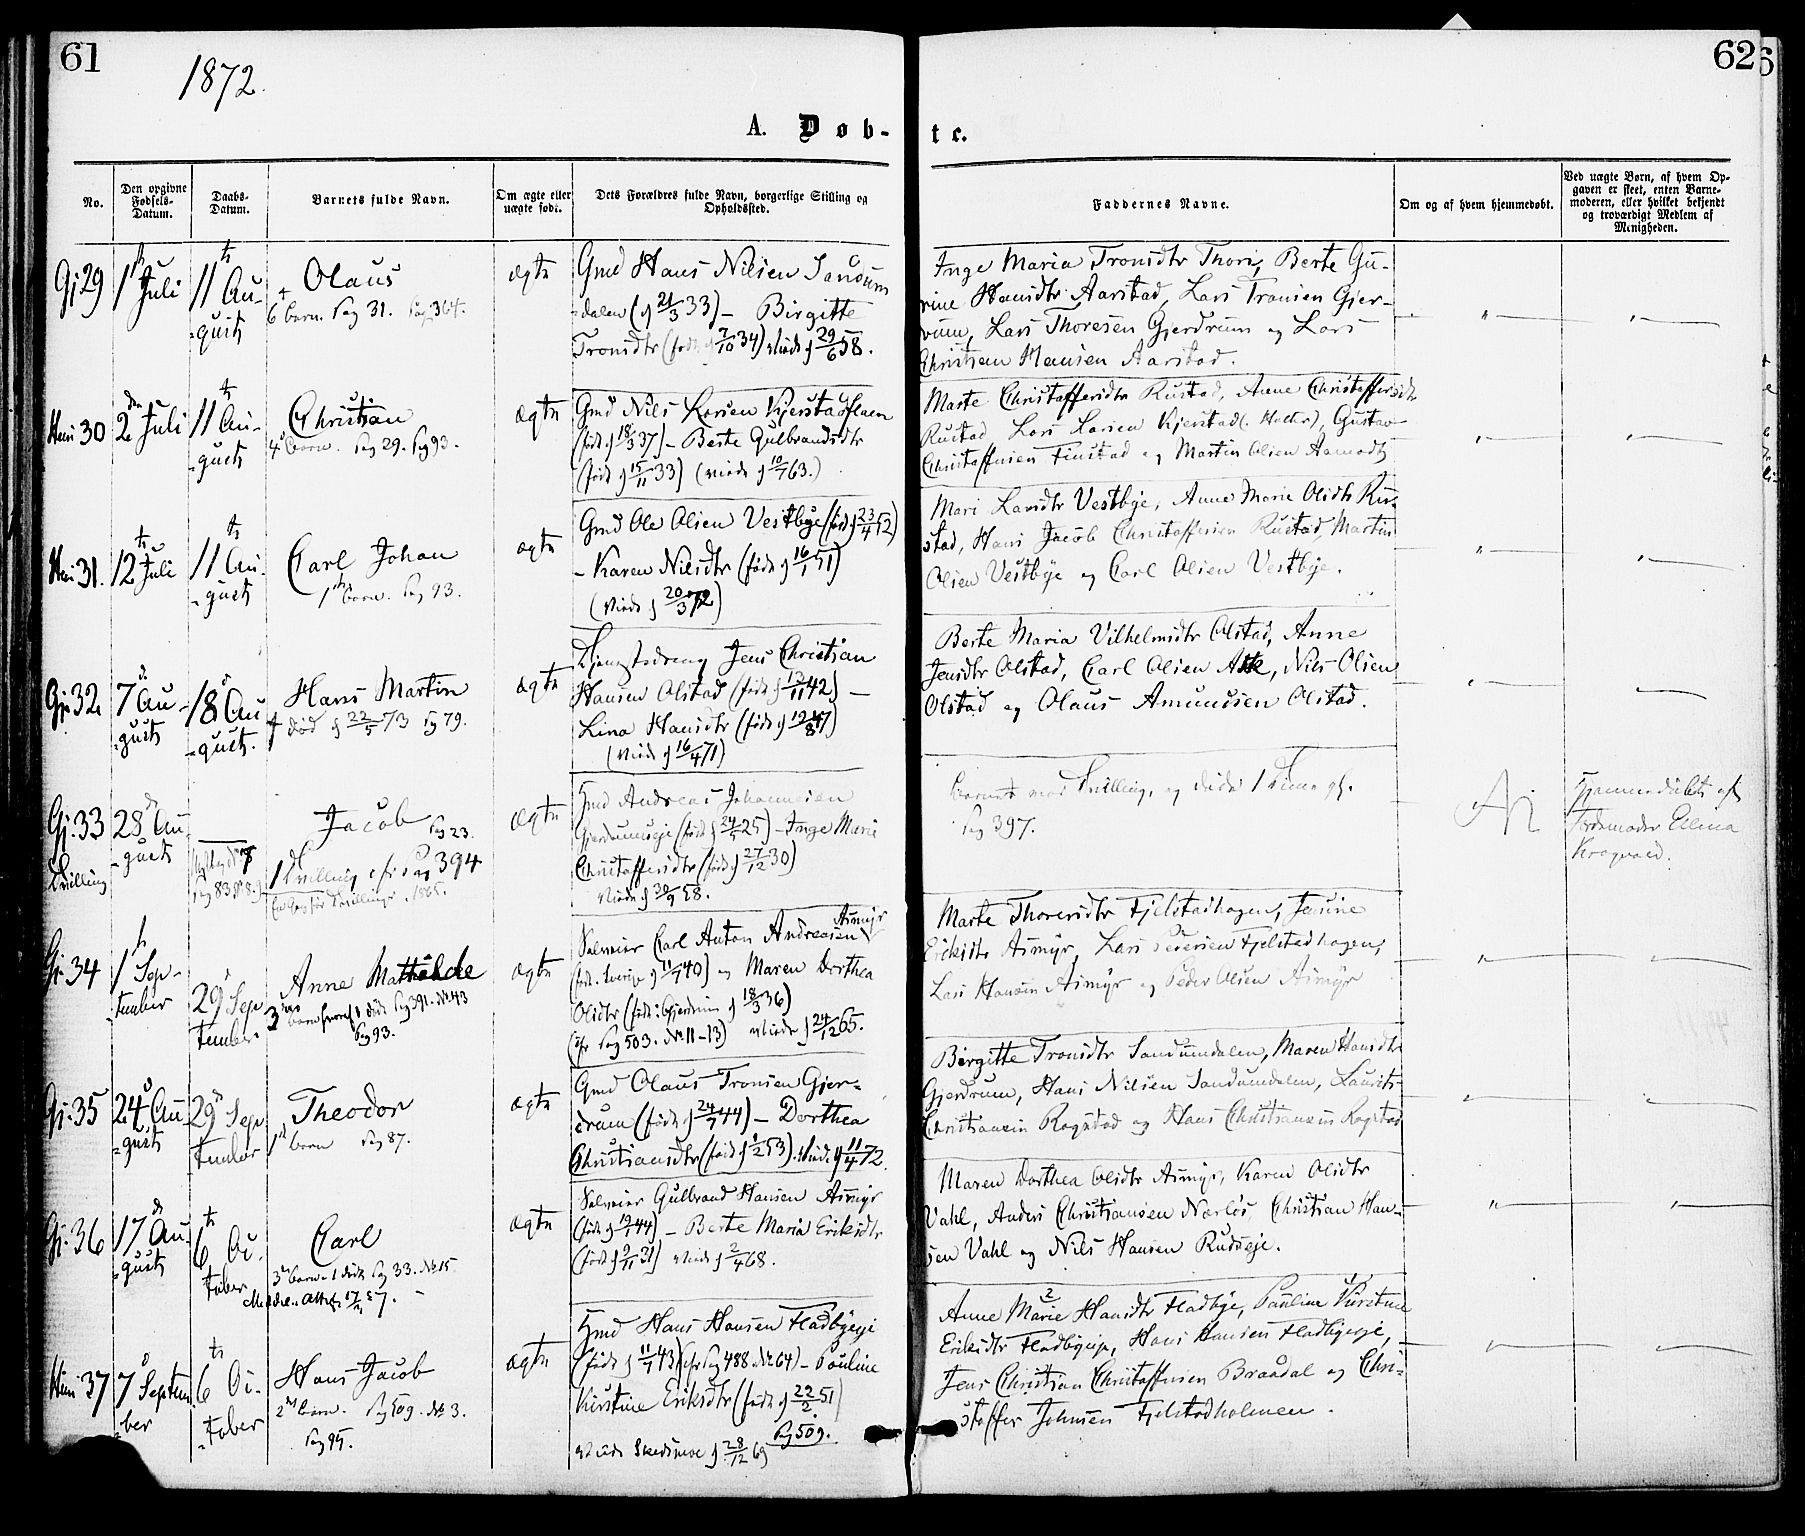 61
62
1872.
A. Døb-
te.
No.
Den opgivne Fødsels-Datum.
Daabs-Datum.
Barnets fulde Navn.
Om ægte eller uægte født.
Dets Forældres fulde Navn, borgerlige Stilling og Opholdssted.
Faddernes Navne.
Om og af hvem hjemmedøbt.
Ved uægte Børn, af hvem Op-
gaven er skeet, enten Barne-
moderen, eller hvilket bekjendt
og troværdigt Medlem af
Menigheden.
Gj 29
1 Juli
11 Au-
-gust
Olaus
6 barn. Pag 31. Pag 364.
ægte
Gmd Hans Nilsen Sandum
-dalen (f 21/3 33) – Birgitte
Tronsdtr (født f 7/10 34) viede f 29/6 58.
Inge Maria Tronsdtr Thori, Berte Gu-
rine Hansdtr Aarstad, Lars Tronsen Gjer-
drum, Lars Thoresen Gjerdrum og Lars
Christian Hansen Aarstad.
30
2den Juli
11 Au-
-gust
Christian
4 barn. Pag 29. Pag 93.
ægte
Gmd Nils Larsen Kjerstadflaen
(født f 18/5 37) – Berte Gulbrandsdtr
(født f 15/11 33) (viede f 10/7 63.)
Marte Christoffersdtr Rustad, Anne Christoffersdtr
Rustad, Lars Larsen Kjerstad, Gustav
Christoffersen Finstad og Martin Olsen Aamodt
31.
12 Juli
11 Au-
-gust
Carl Johan
1ste barn. Pag 93.
ægte
Gmd Ole Olsen Vestbye (født f 23/4 52)
– Karen Nilsdtr (født f 16/1 51)
(viede f 20/3 72)
Mari Larsdtr Vestbye, Anne Marie Olsdtr Ru-
stad, Hans Jacob Christoffersen Rustad, Martin
Olsen Vestbye og Carl Olsen Vestbye.
Gj 32
7 Au-
-gust
18 Au
-gust.
Hans Martin
død f 22/5 73 Pag 79.
ægte
Jens Christian
Hansen Olstad (født f 12/11 42) –
Lina Hansdtr (født f 19/8 47)
(viede f 16/4 71)
Berte Maria Vilhelmsdtr Olstad, Anne
Jensdtr Olstad, Carl Olsen Ask, Nils Olsen
Olstad og Olaus Amundsen Olstad.
Gj. 33
Tvilling
28 Au-
-gust
Jacob Pag 23.
1 Tvilling cfr Pag 394
1865.
ægte
Gmd Andreas Johannesen
Gjerdrumseje (født f 24/5 25) – Inge Marie
Christoffersdtr (født f 27/12 30)
viede f 30/9 58.
Barnet var Tvilling, og døde 1 Time gl.
Pag 397.
Hjemmedøbt af
Jordemoder Elina
Kragvold.
Gj. 34
1 Sep-
-tember
29 Sep
tember
Anne Mathilde
Pag 391. No. 43
Pag 93.
ægte
Selveier Carl Anton Andreasen Asmyr
(født Sverige f 11/7 40) og Maren Dorthea
Olsdtr (født i Gjerdrum f 18/3 36)
(cfr Pag 503. No. 11-13) viede f 24/12 65.
Marte Thoresdtr Fjelstadhagen, Jensine
Eriksdtr Asmyr, Lars Pedersen Fjelstadhagen,
Lars Hansen Asmyr og Peder Olsen Asmyr
Gj. 35
24 Au-
-gust
29 Sep
tember
Theodor
1ste barn Pag 87.
ægte
Gmd Olaus Tronsen Gjer-
drum (født f 24/7 44) – Dorthea
Christiansdtr (født f 1/2 53). viede f 11/4 72.
Birgitte Tronsdtr Sandumdalen, Maren Hansdtr
Gjerdrum, Hans Nilsen Sandumdalen, Laurits
Christiansen Rogstad og Hans Christiansen Rogstad
Gj. 36
17 Au-
-gust
6 Oc-
tober
Carl
3 barn. 1 død Pag 33. No 15.
ægte
Selveier Gulbrand Hansen Asmyr
(født f 19/1 44) – Berte Maria Eriksdtr
(født f 9/11 31) viede f 2/4 68.
Maren Dorthea Olsdtr Asmyr, Karen Olsdtr
Vahl, Anders Christiansen Nærløs, Christian Han-
sen Vahl og Nils Hansen Rudseje.
37
7 Septem
-ber
6 Oc-
-tober
Hans Jacob
2 barn. Pag 509. No 3.
Pag 95.
ægte
Hmd Hans Hansen Fladbyeje
(født f 11/7 43) (cfr Pag 488 No 64) – Pauline
Kirstine Eriksdtr (født f 22/2 51)
Pag 509.
viede Skedsmoe f 28/12 69
Anne Marie Hansdtr Fladbye, Pauline Kirstine
Eriksdtr Fladbyeje, Hans Hansen Fladbyeje,
Jens Christian Christoffersen Braadal og Chri-
stoffer Johnsen Fjelstadholmen.